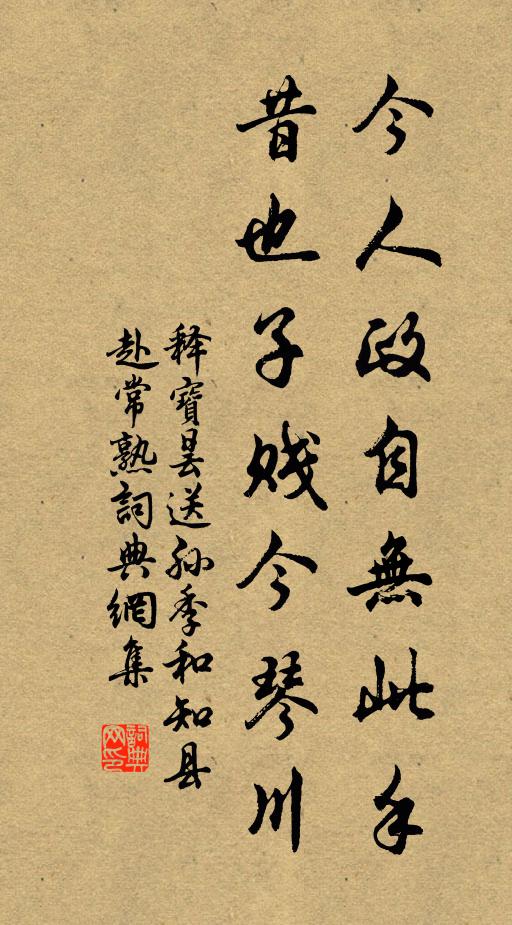 今人政自無此手
昔也子賤今琴川
释寶曇送孙季和知县
赴常熟詞典網集
詞典
网印